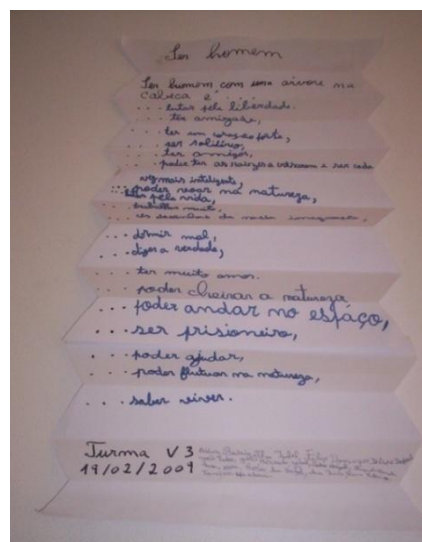 Ser homem
Ser homem com uma árvore na
cabeça é
... lutar pela liberdade.
... ter amizade,
... ter um coração forte,
... ser solitário,
... ter amigos,
... poder ter as raízes a e ser cada
vez mais inteligente,
... poder voar na natureza,
... pela vida,
... trabalhar muito,
... os desenhos da nossa imaginação,
... dormir mal,
... dizer a verdade,
... ter muito amor.
... poder cheirar a natureza
... poder andar no espaço,
... ser prisioneiro,
... poder ajudar,
... poder flutuar na natureza,
... saber viver.
Turma V3
19/02/2009